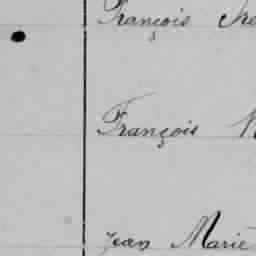 François
François
Jean Marie